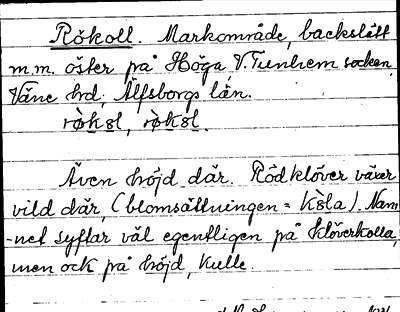 Rökoll. Markområde, backslätt
m.m. öster på Höga V. Tunhem socken,
Väne hd, Älfsborgs län.
Även höjd där. Rödklöver växer
vild där, (blomsättningen = Kȯla). Nam-
-net syftar väl egentligen på klöverkolla,
men ock på höjd, kulle.